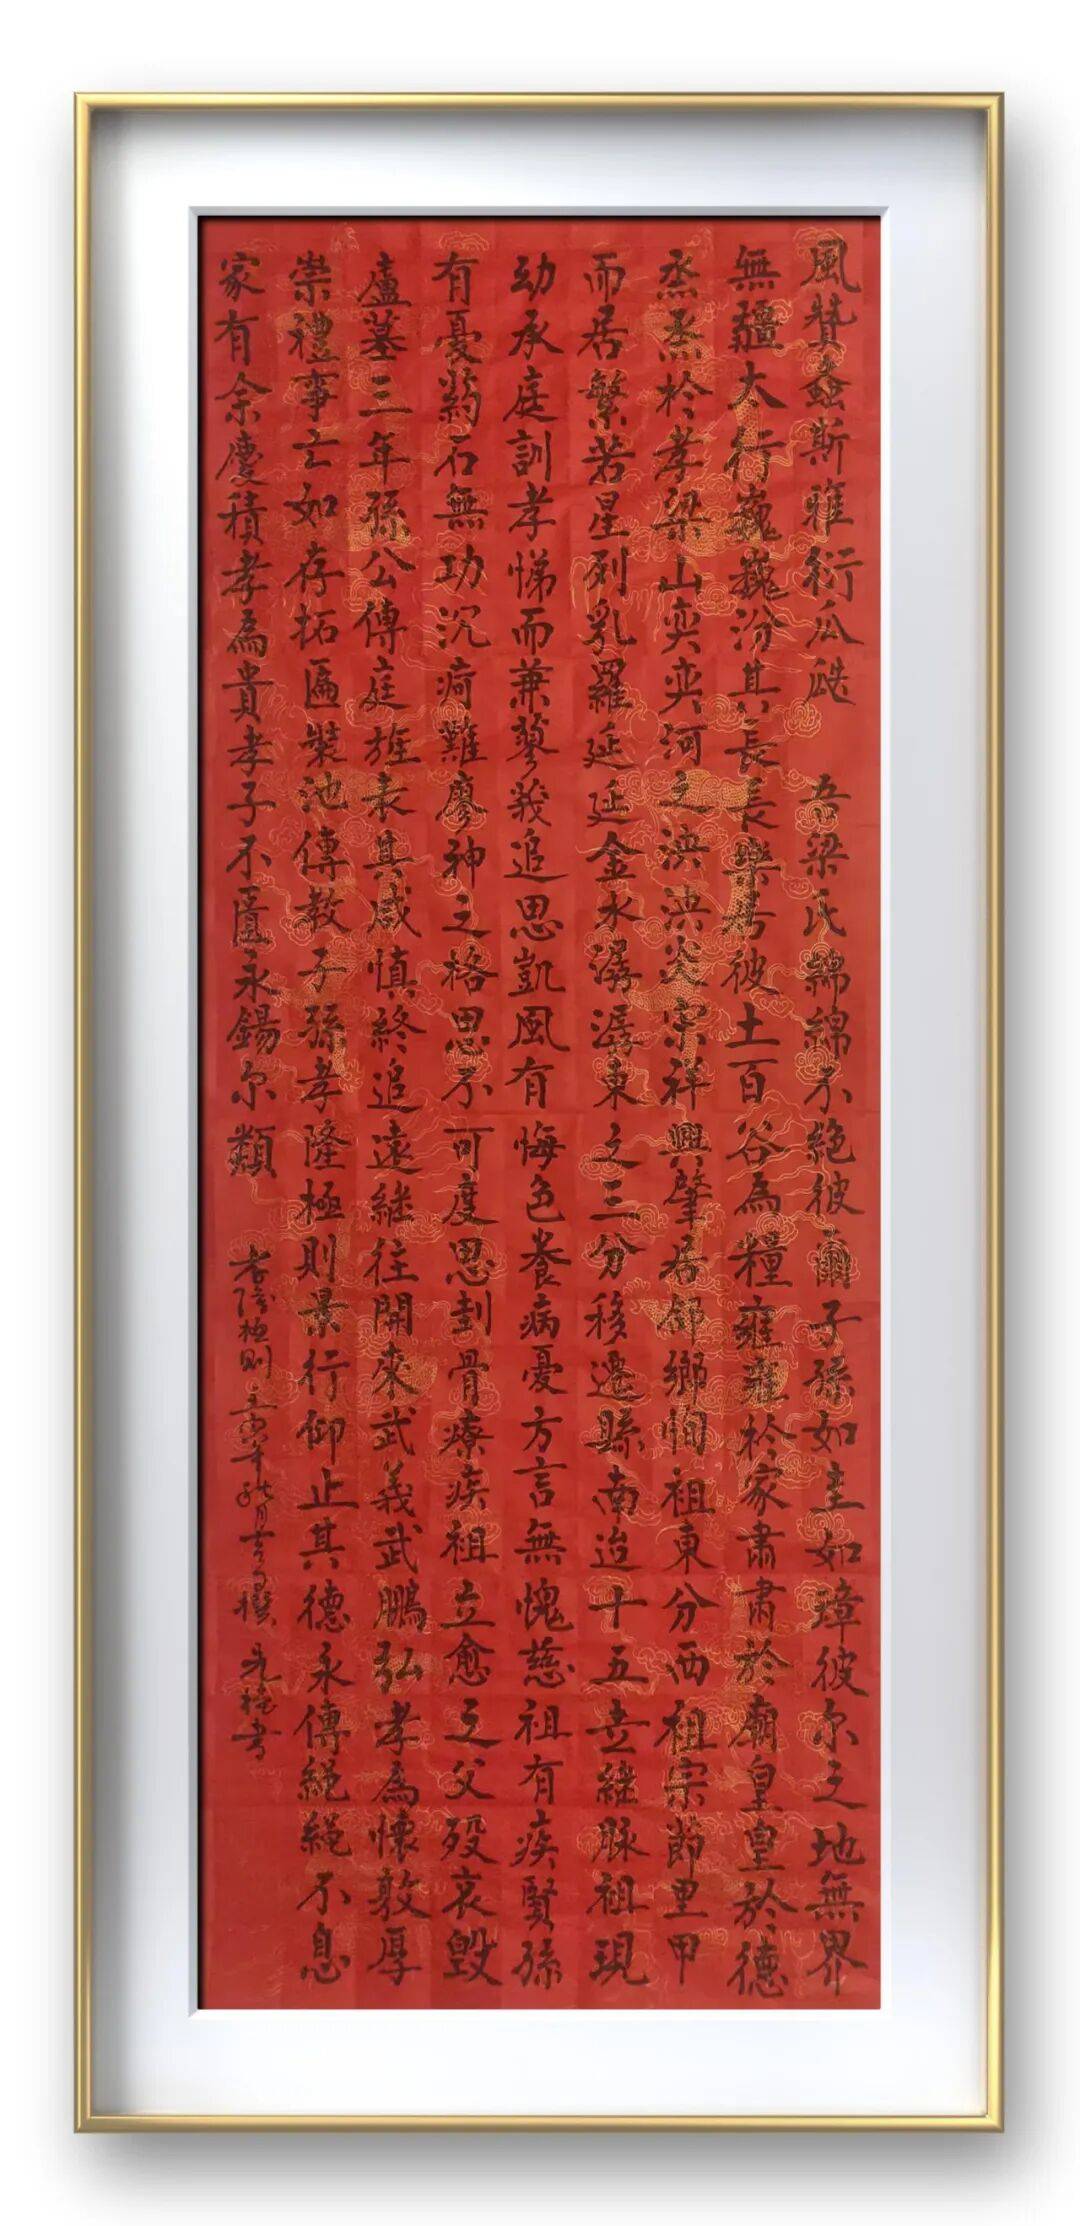 風贊螽斯雅衍瓜瓞 吾梁氏綿綿不絶彼爾子孫如圭如璋彼尔之地無界
無疆太行巍巍汾其長長樂吾彼土百谷為糧雍雍於家肅肅於廟皇皇於德
烝烝於孝梁山奕奕河之泱泱炎宗祥興肇居邻鄉憫祖東分西祖宗節里甲
而居繁若星列乳羅延延金水潺潺東之三分移遷縣南迨十五世継脉祖現
幼承庭訓孝悌而兼蓼莪追思凱風有悔色養病憂方言無愧慈祖有疾賢孫
有憂药石無功沉疴難廖神之格思不可度思刲骨療疾祖立愈之父殁哀毀
廬墓三年孫公傳庭旌表其咸慎終追遠継往開來武義武鵬弘孝為懷敦厚
崇禮事亡如存拓匾裝池傳教子孫孝隆極則景行仰止其德永傳繩繩不息
家有余慶積孝為貴孝子不匱永錫尔類 孝隆極則